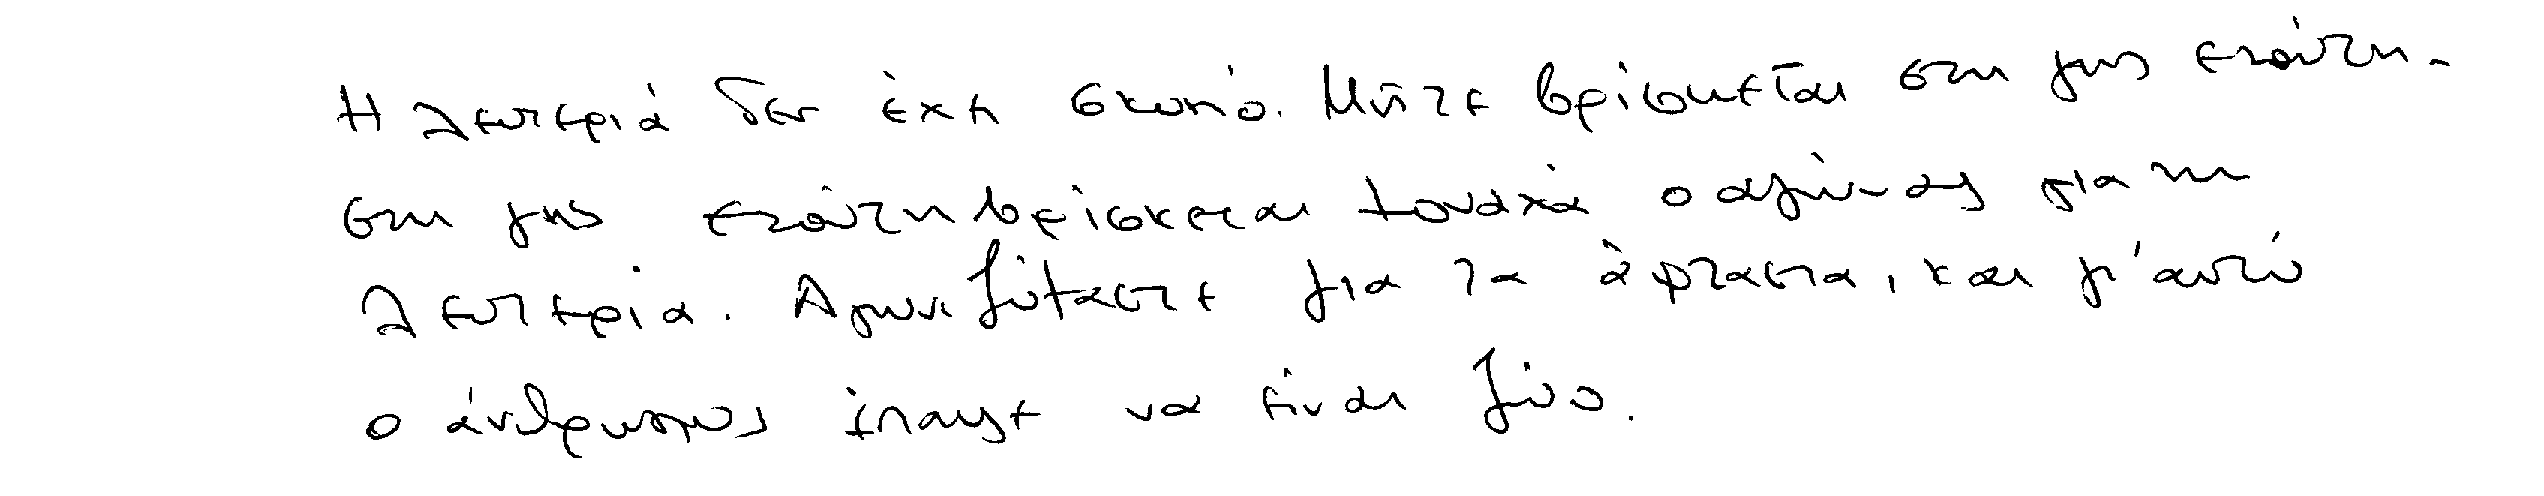 Η λευτεριά δεν έχει σκοπό. Μήτε βρίσκεται στη γης ετούτη.
στη γης ετούτη βρίσκεται μοναχά ο αγώνας για τη
λευτεριά. Αγωνιζόμαστε για τα άφταστα, και γι' αυτό
ο άνθρωπος έπαψε να είναι ζώο.